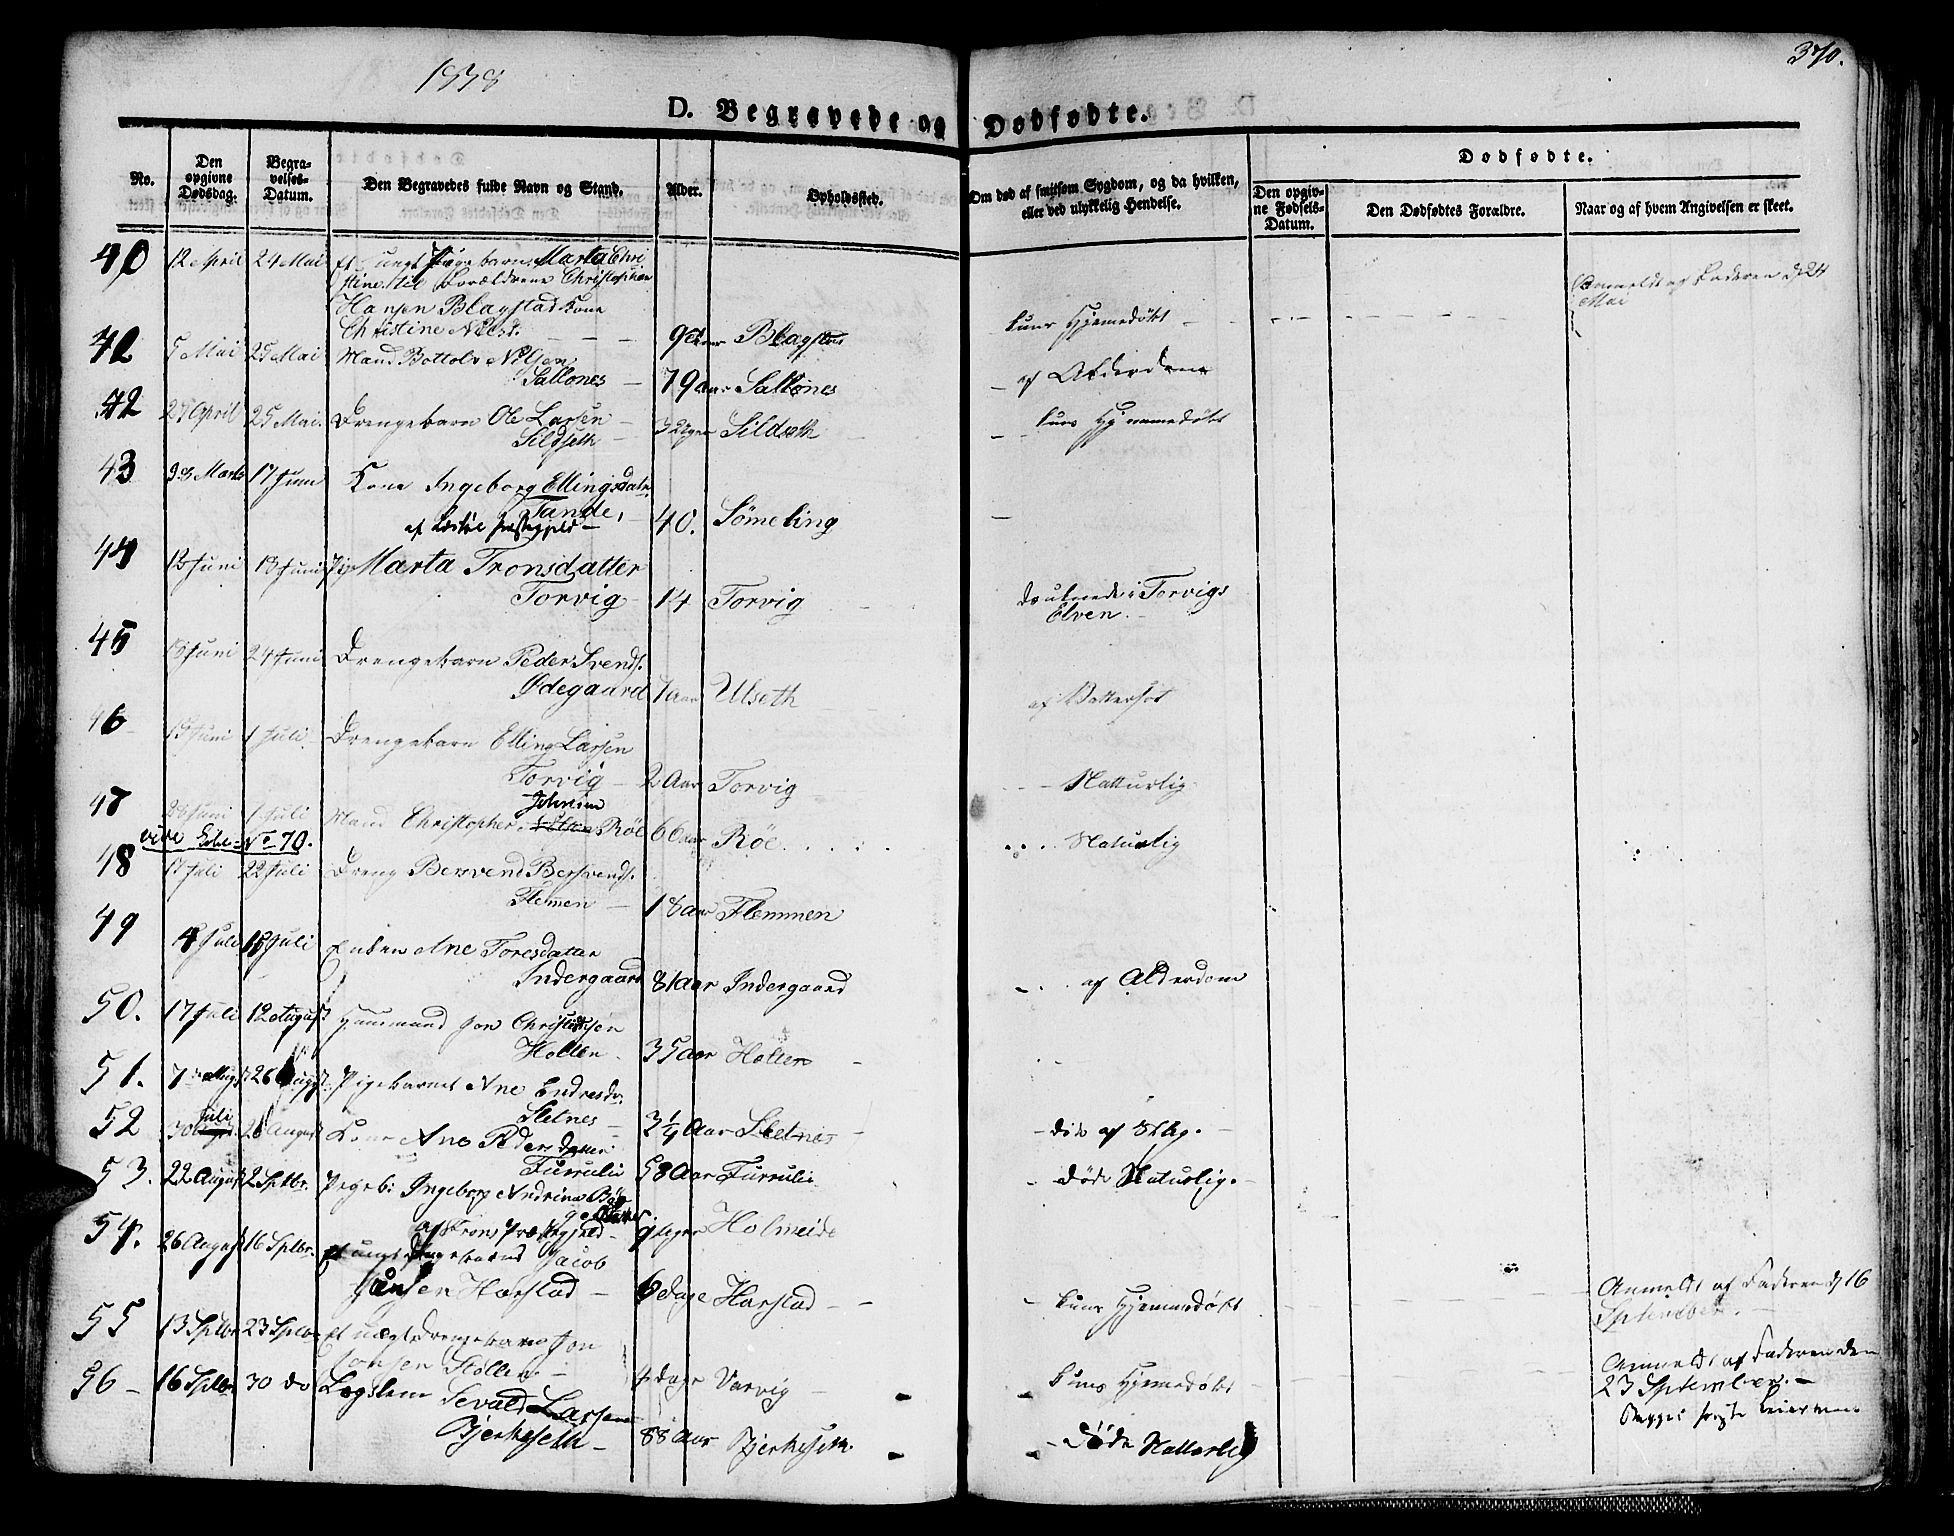 1838
370.
D. Begravede og Dødfødte.
No.
Den opgivne Dødsdag.
Begravelses-Datum.
Den Begravedes fulde Navn og Stand.
Alder.
Opholdssted.
Om død af smitsom Sygdom, og da hvilken, eller ved ulykkelig Hendelse.
Dødfødte.
Den opgivne Fødsels-Datum.
Den Dødfødtes Forældre.
Naar og af hvem Angivelsen er skeet.
40 12 April 24 Mai Et Pigebarn Marta Chri
stine Forældrene Christopher
Hansen Blagstad Kone
Christine Nilsd.
Blagstad kuns Hjemedøbt
Anmeldt af Faderen d 24
Mai
42 5 Mai 25 Mai Mand Bottolv Nilsen
Sallones 79 aar Sallones af Alderdom
42 27 April 25 Mai Drengebarn Ole Larsen
Sildseth 3 Uger Sildseth kuns Hjemmedøbt
43 Marts 17 Juni Kone Ingeborg Ellingsdatr
Tande, 40. Sömeling
44 13 Juni 18 Juni Pige Marta Tronsdatter
Torvig 14 Torvig druknede i Torvigs
Elven.
45 Juni 24 Juni Drengebarn Peder Svends.
Ødegaard 7 aar Ulseth af Vattersot
46 Juni 1 Juli Drengebarn Elling Larsen
Torvig 2 Aar Torvig Natturlig
47 Juni 1 Juli Mand Christopher Johnsen Röe 66 aar Röe Naturlig
vide No 70.
48 17 Juli 22 Juli Dreng Bersvend Bersvends.
Flemen 18 aar Flemmen
49 Juli 15 Juli Enken Ane Toresdatter
Indergaard 81 Aar Indergaard af Alderdom
50. 17 Juli 12 August Huusmand Jon Christensen
Holten 35 Aar Holten
51. 7 Augst 26 Augst Pigebarnet Ane Endresdr.
Sletnes 3 1/4 Aar Sletnes
52 30 Juli 26 August Kone Ane Pedersdatter
Furrulie 58 Aar Furrulie døde Naturlig.
53. 22 August 2 Sptbr. Pigeb: Ingeborg Andrina
Præstegjeld 9 Uger Holmeide
54. 26 August 16 Sptbr. Et Drengebarn Jacob
Hansen Harstad 6 Dage Harstad kuns Hjemmedøbt
Anmeldt af Faderen d 16
September.
55 13 Sptbr 23 Sptbr Et uægte Drengebarn Jon
Jonsen Stollen 4 dage Varvig kuns Hjemedøbt
Anmeldt af Faderen den
23 September.
56 16 Sptbr 30 do Lægslem Sevald Larsen
Bjerkeseth 88 Aar Bjerkeseth. døde Natturlig